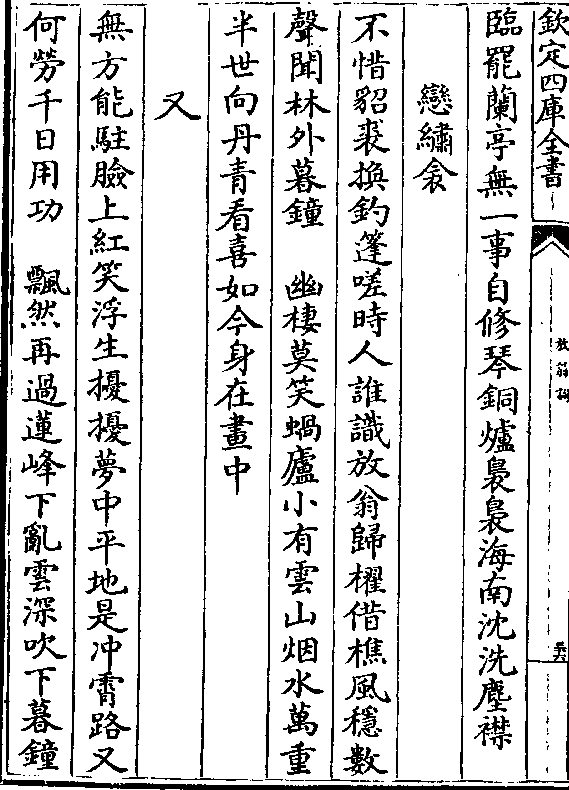 欽定四庫全書
放翁詞
臨罷蘭亭無一事自修琴銅爐裊裊海南沈洗塵襟
戀繡衾
不惜貂裘換釣篷嗟時人誰識放翁歸櫂借樵風穩數
聲聞林外暮鐘　幽棲莫笑蝸廬小有雲山烟水萬重
半世向丹青看喜如今身在畫中
又
無方能駐臉上紅笑浮生擾擾夢中平地是冲霄路又
何勞千日用功　飄然再過蓮峰下亂雲深吹下暮鐘